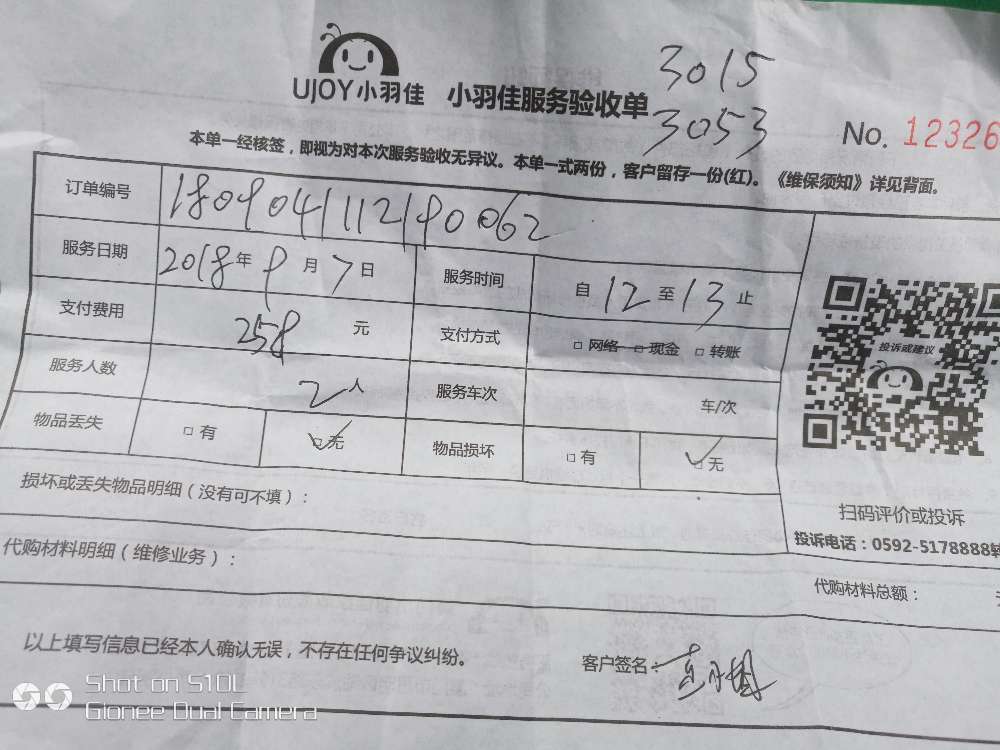 3015
UJOY小羽佳 小羽佳服务验收单
3053
No. 12326
本单一经核签，即视为对本次服务验收无异议。本单一式两份，客户留存一份(红)。《维保须知》详见背面。
订单编号 180904112190062
服务日期 2018年9月7日 服务时间 自12至13止
支付费用 258元 支付方式 □网络 □现金 □转账
服务人数 2人 服务车次 车/次
物品丢失 □有 ☑无 物品损坏 □有 ☑无
投诉或建议
损坏或丢失物品明细（没有可不填）：
扫码评价或投诉
投诉电话：0592-5178888转
代购材料明细（维修业务）：
代购材料总额：
以上填写信息已经本人确认无误，不存在任何争议纠纷。
客户签名：
Shot on S10L
Gionee Dual Camera